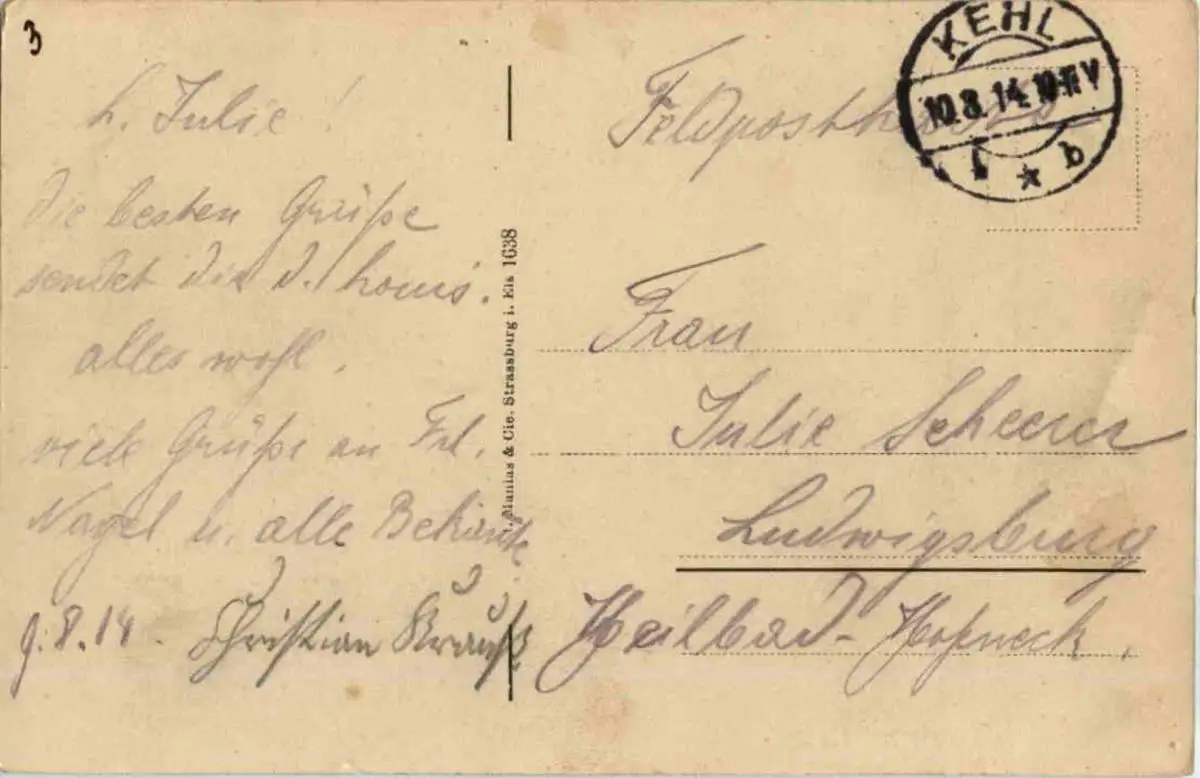 3
L. Julie!
Die besten Grüße
sendet dir d. Louis.
alles wohl.
viele Grüße an Frl.
Nagel u. alle Bekannte
9.8.14. Christian Krauß
Manias & Cie. Strassburg i. Els 1638
Feldpostkarte
KEHL
10.8.14. 10-11 V
b
Frau
Julie Scheerer
Ludwigsburg
Heilbad-Hoheneck.